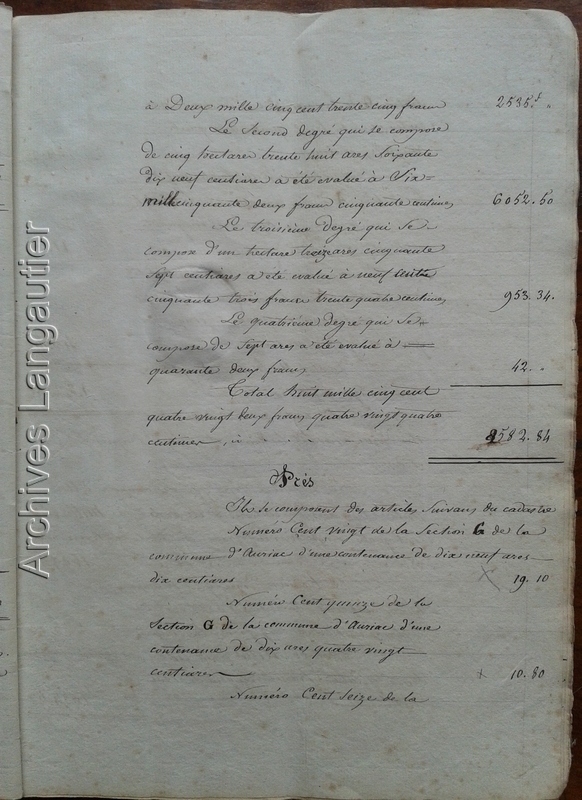 à Deux mille cinq cent trente cinq francs 2535.f "
Le Second degré qui se compose
de cinq hectares trente huit ares Soixante
Dix neuf centiares a été evalué à Six=
mille cinquante deux francs cinquante centimes 6052.50
Le troisième degré qui se=
compose d'un hectare treize ares cinquante
Sept centiares a été evalué à neuf cent
cinquante trois francs trente quatre centimes 953.34.
Le quatrième degré qui Se=
compose de Sept ares a été evalué à
quarante deux francs 42. "
Total huit mille cinq cent
quatre vingt deux francs quatre vingt quatre
centimes 8582.84
Prés
Ils se composent des articles Suivans du cadastre
Numéro Cent vingt de la Section G de la
commune d'Auriac d'une contenance de dix neuf ares
dix centiares 19.10
Numéro Cent quinze de la
Section G de la commune d'Auriac d'une
contenance de dix ares quatre vingt
centiares 10.80
Numéro Cent Seize de la
Archives Langautier